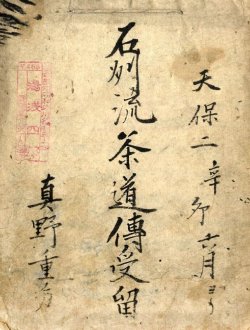 天保二辛卯六月ヨリ
石州流茶道傳受留
真野重